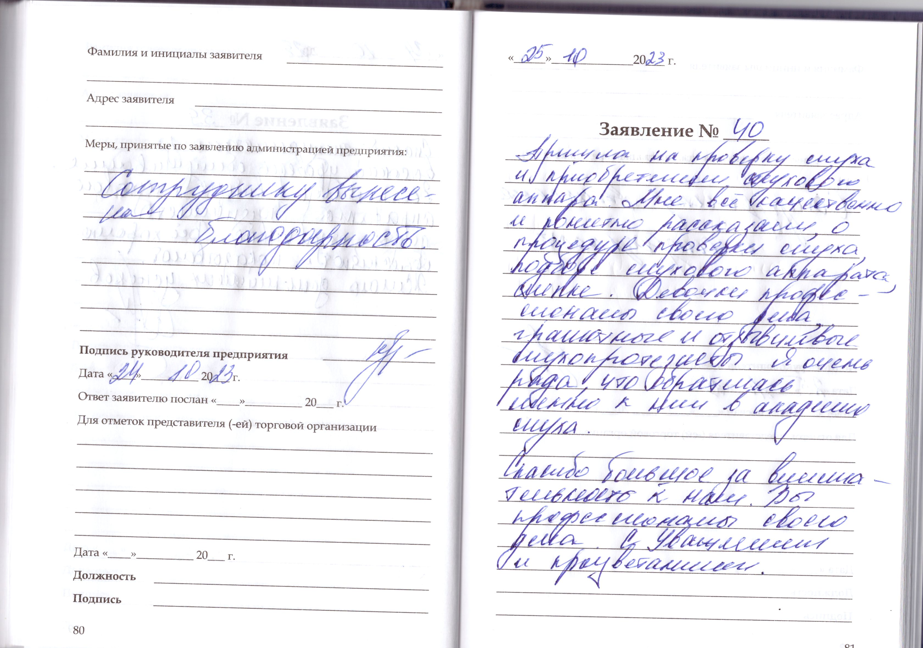 Фамилия и инициалы заявителя
Адрес заявителя
Меры, принятые по заявлению администрацией предприятия:
Сотруднику вынесе-
на благодарность
Подпись руководителя предприятия
Дата «24» 10 2023 г.
Ответ заявителю послан «____» __________ 20___ г.
Для отметок представителя (-ей) торговой организации
Дата «____»__________ 20___ г.
Должность
Подпись
80
«25» 10 2023 г.
Заявление № 40
Пришла на проверку слуха
и приобретении слухового
аппара. Мне все качественно
и понятно рассказали о
процедуре проверки слуха,
подборе слухового аппарата,
Девочки профес-
сионалы своего дела,
грамотные и отзывчивые
слухопротезисты. Я очень
рада что обратилась
именно к ним в академию
слуха.
Спасибо большое за внима-
тельность к нам. Вы
профессионалы своего
дела. С Уважением
и процветанием.
81